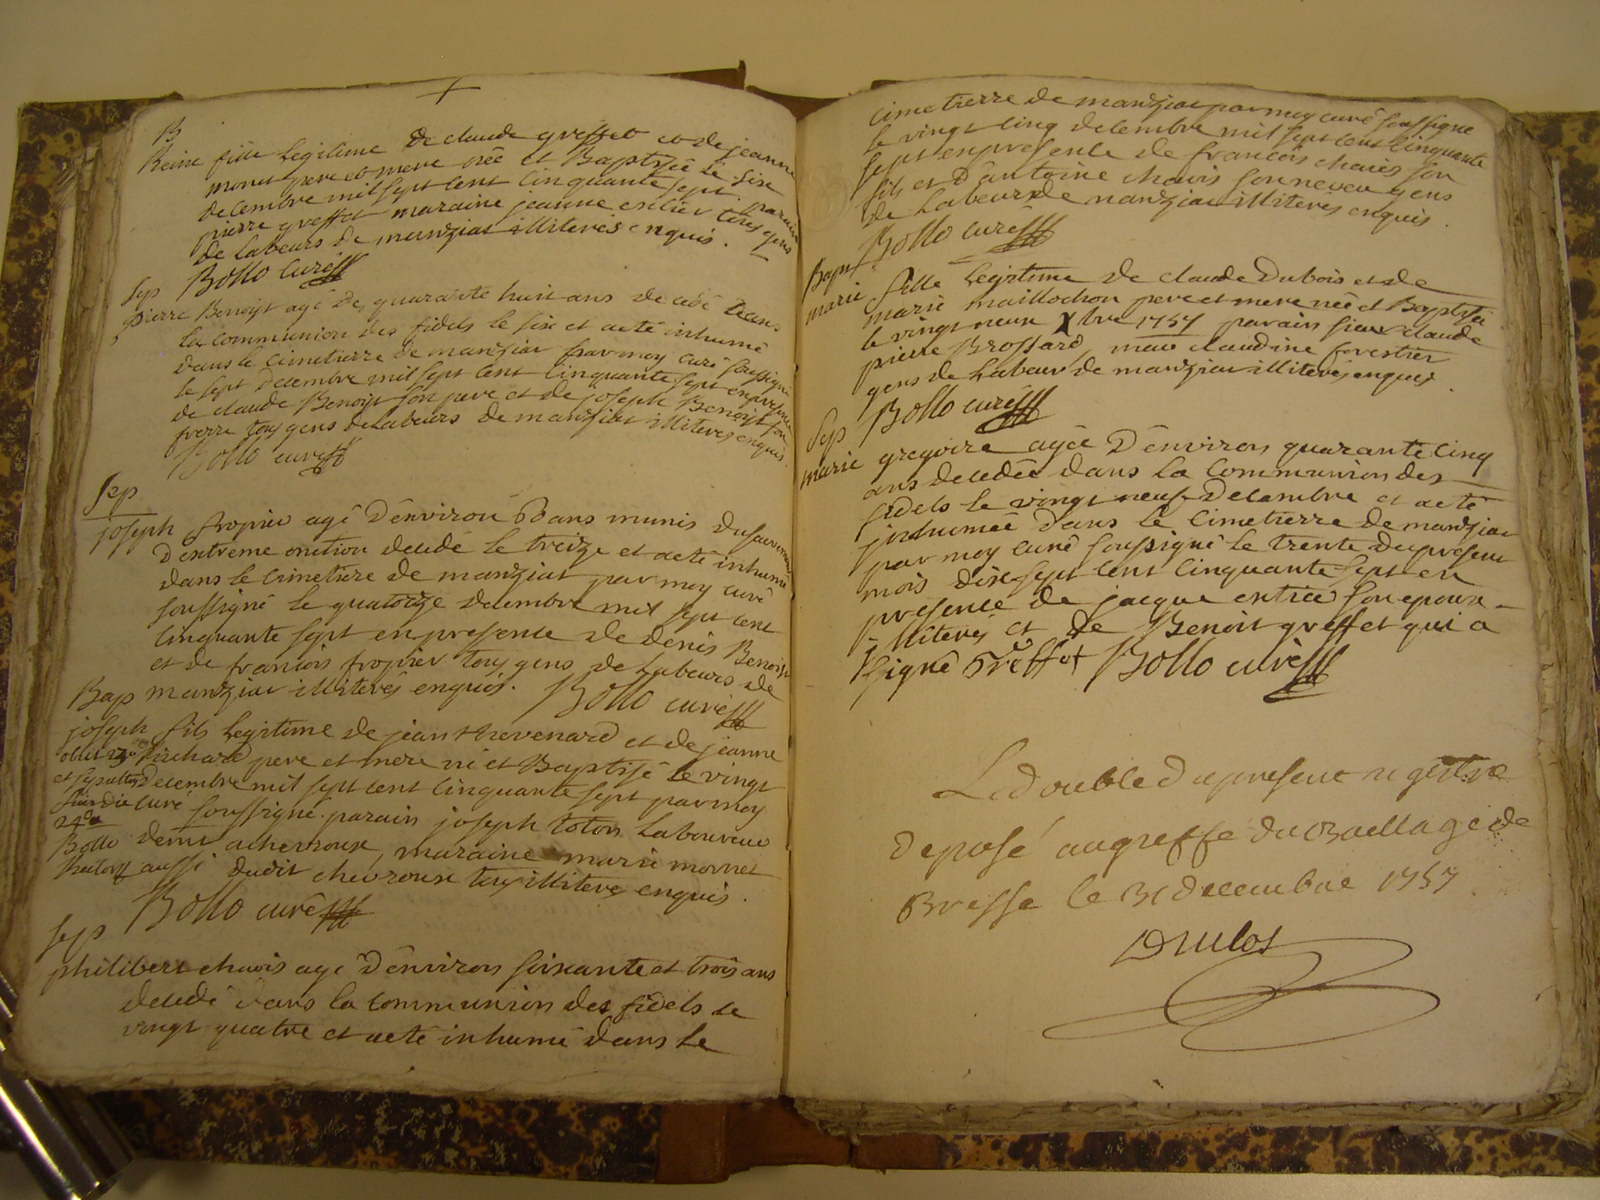 B
Reine fille legitime de claude greffet et de jeanne
monet pere et mere née et Baptisée le six
decembre mil sept cent cinquante sept parain
pierre greffet maraine jeanne tous gens
de labeurs de manziat illiteres enquis.
Bollo curé
Sep
pierre Benoist agé de quarante huit ans decedé dans
la communion des fidels le six et aeté inhumé
dans le cimetierre de manziat par moy curé soussigné
le sept decembre mil sept cent cinquante sept en presence
de claude Benoist son pere et de joseph Benoist son
frerre tous gens de labeurs de manziat illiteres enquis.
Bollo curé
Sep
joseph froprier agé d'environ 60 ans munis du sacrement
d'extreme onction decedé le treize et aeté inhumé
dans le cimetiere de manziat par moy curé
soussigné le quatorze decembre mil sept cent
cinquante sept en presence de denis Benoist
et de francois froprier tous gens de labeurs de
manziat illiterés enquis. Bollo curé
Bap
joseph fils legitime de jean thevenard et de jeanne
pere et mere né et Baptisé le vingt
decembre mil sept cent cinquante sept par moy
curé soussigné parain joseph toton laboureur
maraine marie monet
aussi dudit chevroux tous illiteres enquis.
Bollo curé
Sep
philibert chavis agé d'environ soixante et trois ans
decedé dans la communion des fidels le
vingt quatre et aeté inhumé dans le
cimetierre de manziat par moy curé soussigné
le vingt cinq decembre mil sept cent cinquante
sept en presence de francois chavis son
fils et d'antoine chavis son neveu gens
de labeurs de manziat illiteres enquis.
Bollo curé
Bap
marie fille legitime de claude dubois et de
marie maillochon pere et mere née et Baptisée
le vingt neuf Xbre 1757 parain sieur claude
pierre Brossard, mare claudine forestier
gens de labeur de manziat illiteres enquis.
Bollo curé
Sep
marie gregoire agée d'environ quarante cinq
ans decedée dans la communion des
fidels le vingt neuf decembre et aeté
inhumée dans le cimetierre de manziat
par moy curé soussigné le trente du present
mois dixsept cent cinquante sept en
presence de jacque son epoux
illiteré et de Benoit greffet qui a
signé Greffet Bollo curé
Le double du present registre
deposé au greffe du Baillage de
Bresse le 31 decembre 1757